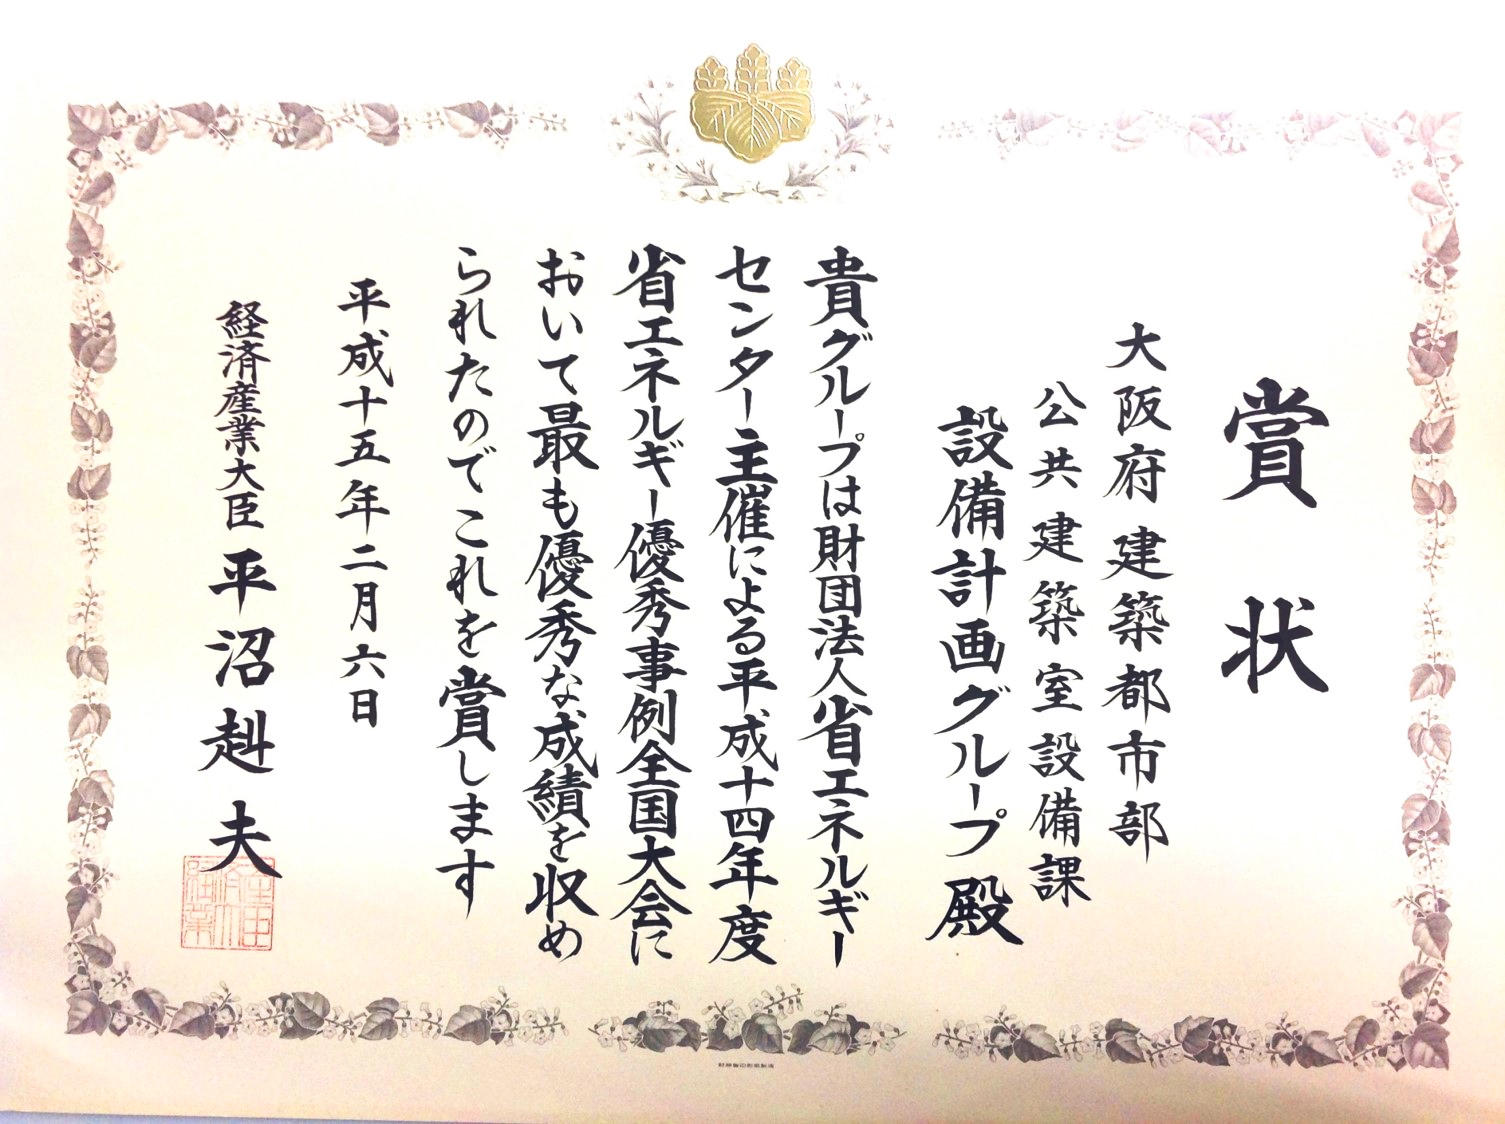 賞状
大阪府建築都市部
公共建築室設備課
設備計画グループ殿
貴グループは財団法人省エネルギー
センター主催による平成十四年度
省エネルギー優秀事例全国大会に
おいて最も優秀な成績を収め
られたのでこれを賞します
平成十五年二月六日
経済産業大臣 平沼赳夫